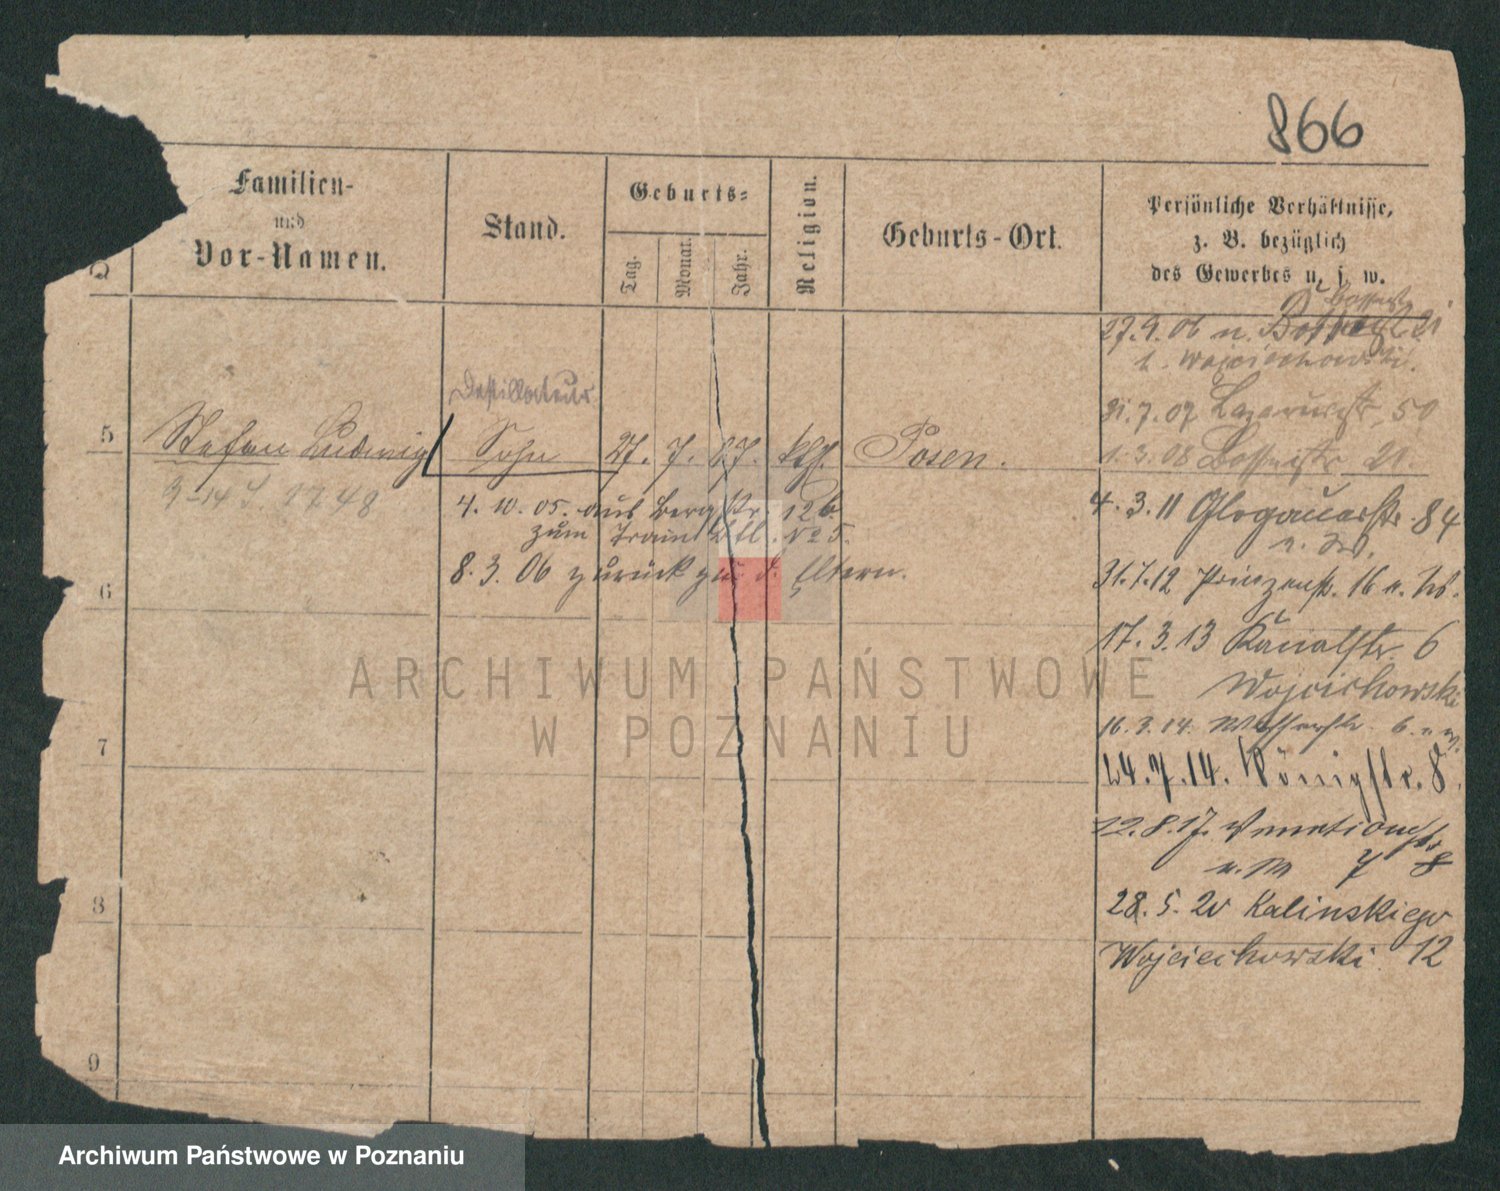 866
Familien-
und
Vor-Namen.
Stand.
Geburts-
Tag.
Monat.
Jahr.
Religion.
Geburts-Ort.
Persönliche Verhältnisse,
z. B. bezüglich
des Gewerbes u. s. w.
27.9.06 n. 21
b. Wojciechowski.
Destillateur
31.7.07 Lazarusstr. 50
5
Stefan Ludwig
Sohn
27. 7. 87. kth. Posen.
1.3.08 21.
4. 10. 05. aus Bergstr. 12b.
zum Train Btl. No 5.
8.3.06 zurück zu d. Eltern.
4.3.11 Glogauerstr. 84
31.7.12 Prinzenstr. 16
6
17.3.13 Kanalstr. 6
Wojciechowski
16.3.14. 6.
7
24.7.14. Königstr. 8.
22.8.17. Venetianerstr
8
28.5.20 Kalinskiego
Wojciechowski 12
8
9
ARCHIWUM PAŃSTWOWE
W POZNANIU
Archiwum Państwowe w Poznaniu